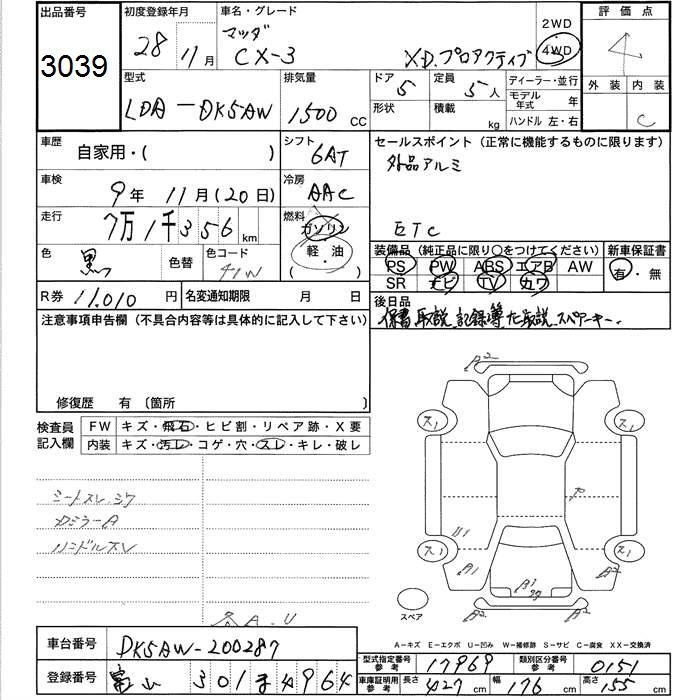 出品番号 初度登録年月 車名・グレード 2WD 評価点
3039 28年 11月 マツダ CX-3 XD.プロアクティブ 4WD 4
型式 排気量 ドア 5 定員 5人 ディーラー・並行 外装 内装
LDA-DK5AW 1500 CC 形状 積載 kg モデル年式 年 C
ハンドル 左・右
車歴 自家用・( ) シフト 6AT セールスポイント(正常に機能するものに限ります)
外品アルミ
車検 9年 11月(20日) 冷房 AAC
走行 7万1千356km 燃料 ガソリン ETC
(軽・油)
色 黒 色替 色コード 41W 装備品(純正品に限り○をつけてください) 新車保証書
PS PW ABS エアB AW 有・無
SR ナビ TV カワ
R券 11,010円 名変通知期限 月 日 後日品
保書 取説 記録簿 ナビ取説 スペアーキー.
注意事項申告欄(不具合内容等は具体的に記入して下さい)
修復歴 有 〔箇所 〕
検査員記入欄 FW キズ・飛石・ヒビ割・リペア跡・X要
内装 キズ・汚レ・コゲ・穴・スレ・キレ・破レ
シートスレ.シワ
ハンドルスレ
各A.U
A2
ス1 ス1
U1
ス1 ス1
A1 A2
A2
スペア
A-キズ E-エクボ U-凹み W-補修跡 S-サビ C-腐食 XX-交換済
車台番号 DK5AW-200287
型式指定番号 参考 17969 類別区分番号 参考 0151
登録番号 富山 301 ま 4964
車庫証明用 参考 長さ 427cm 幅 176cm 高さ 155cm